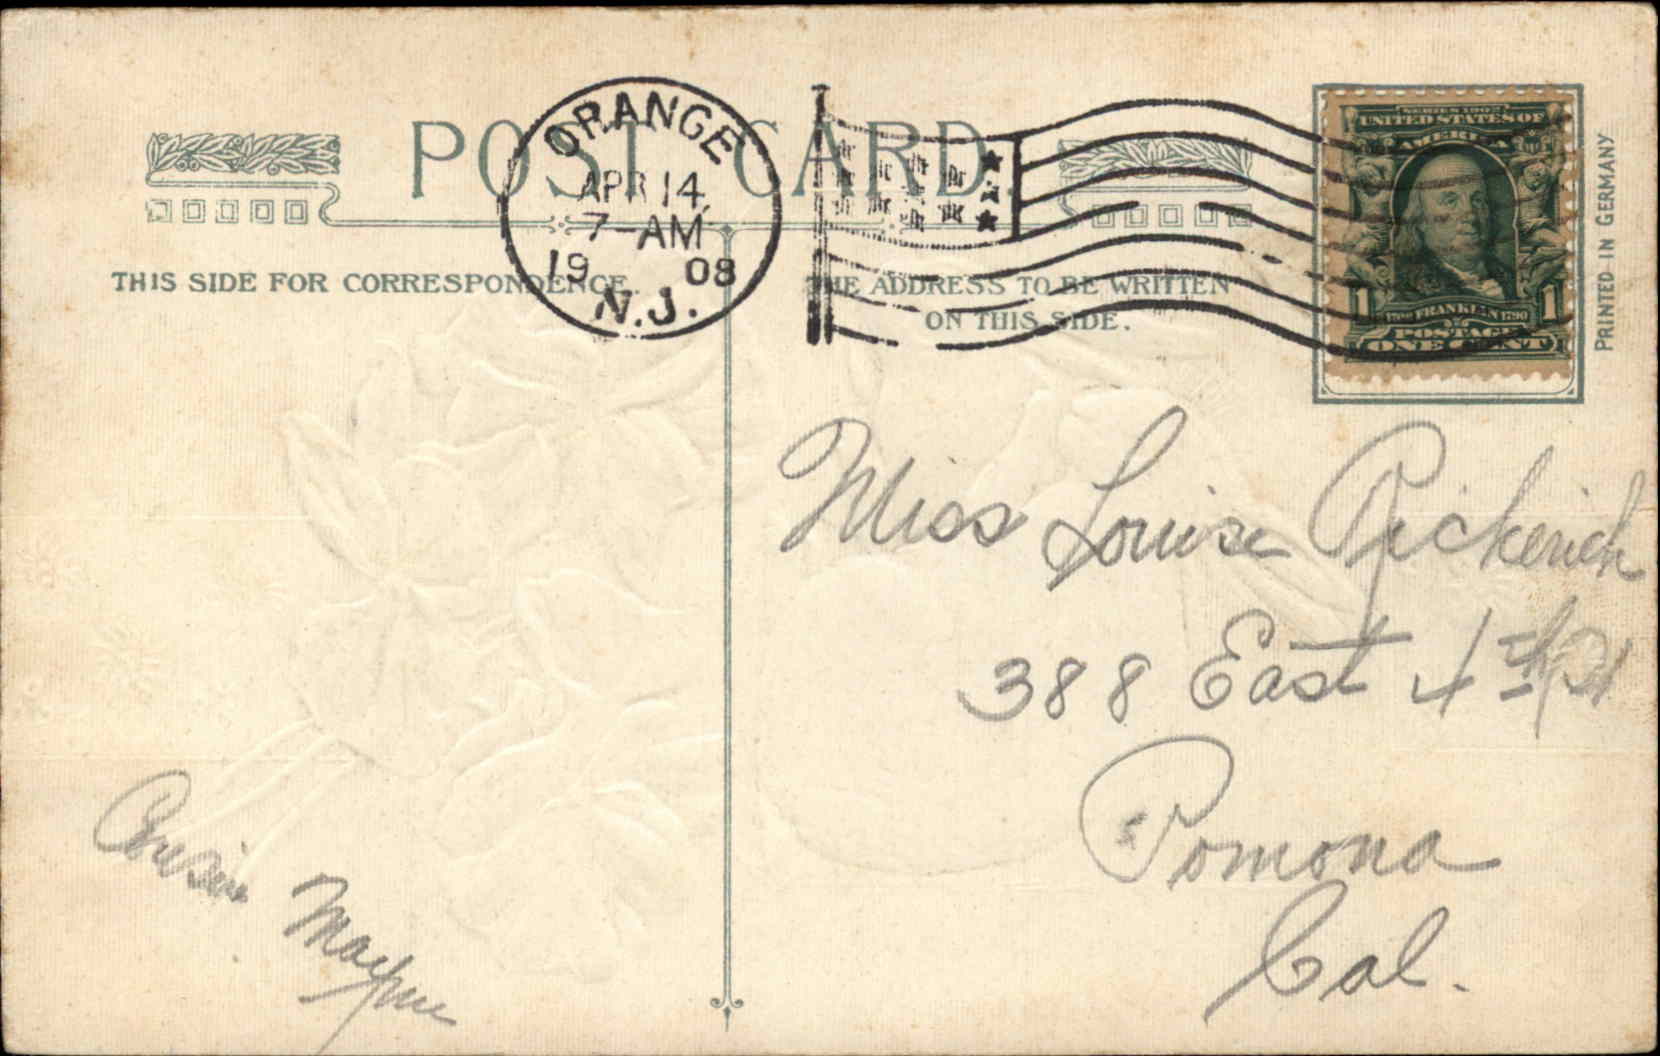 POST CARD
ORANGE
APR 14
7-AM
19 08
N.J.
THIS SIDE FOR CORRESPONDENCE.
THE ADDRESS TO BE WRITTEN
ON THIS SIDE.
SERIES 1902
UNITED STATES OF
AMERICA
1 1
FRANKLIN 1790
POSTAGE
ONE CENT
PRINTED IN GERMANY
Miss Louise
388 East 4th St
Pomona
Cal.
Cousin